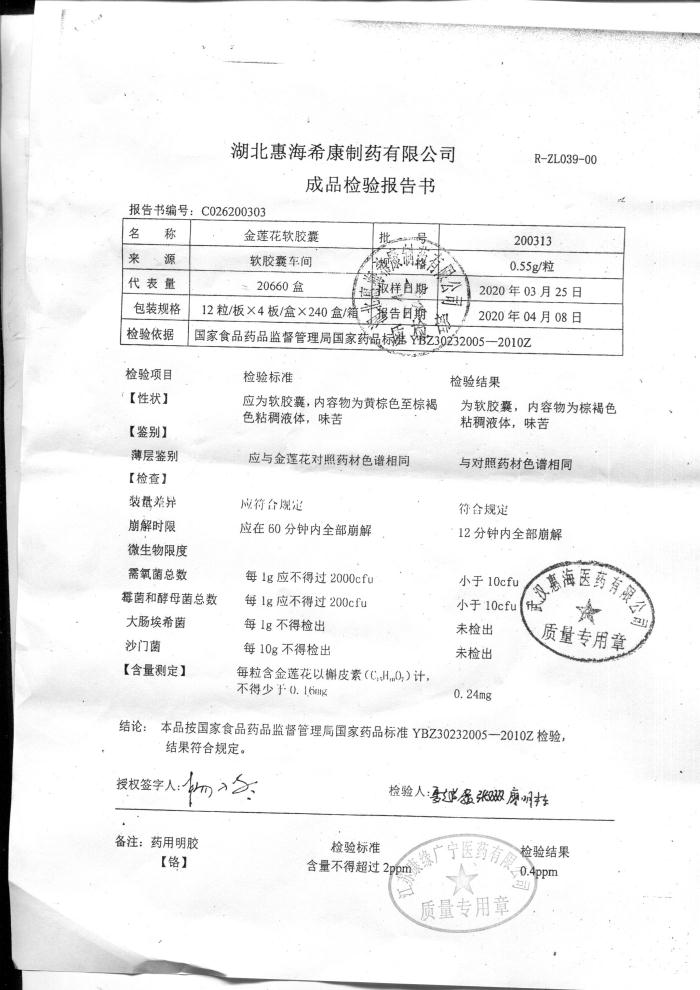 湖北惠海希康制药有限公司
R-ZL039-00
成品检验报告书
报告书编号：C026200303
名 称 金莲花软胶囊 批 号 200313
来 源 软胶囊车间 规 格 0.55g/粒
代 表 量 20660 盒 取样日期 2020 年 03 月 25 日
包装规格 12 粒/板×4 板/盒×240 盒/箱 报告日期 2020 年 04 月 08 日
检验依据 国家食品药品监督管理局国家药品标准 YBZ30232005—2010Z
检验项目 检验标准 检验结果
【性状】 应为软胶囊，内容物为黄棕色至棕褐 为软胶囊，内容物为棕褐色
色粘稠液体，味苦 粘稠液体，味苦
【鉴别】
薄层鉴别 应与金莲花对照药材色谱相同 与对照药材色谱相同
【检查】
装量差异 应符合规定 符合规定
崩解时限 应在 60 分钟内全部崩解 12 分钟内全部崩解
微生物限度
需氧菌总数 每 1g 应不得过 2000cfu 小于 10cfu
霉菌和酵母菌总数 每 1g 应不得过 200cfu 小于 10cfu
大肠埃希菌 每 1g 不得检出 未检出
沙门菌 每 10g 不得检出 未检出
【含量测定】 每粒含金莲花以槲皮素 计，
不得少于 0.16mg 0.24mg
武汉惠海医药有限公司
质量专用章
结论： 本品按国家食品药品监督管理局国家药品标准 YBZ30232005—2010Z 检验，
结果符合规定。
授权签字人： 检验人：
备注：药用明胶 检验标准 检验结果
【铬】 含量不得超过 2ppm 0.4ppm
江苏康缘广宁医药有限公司
质量专用章